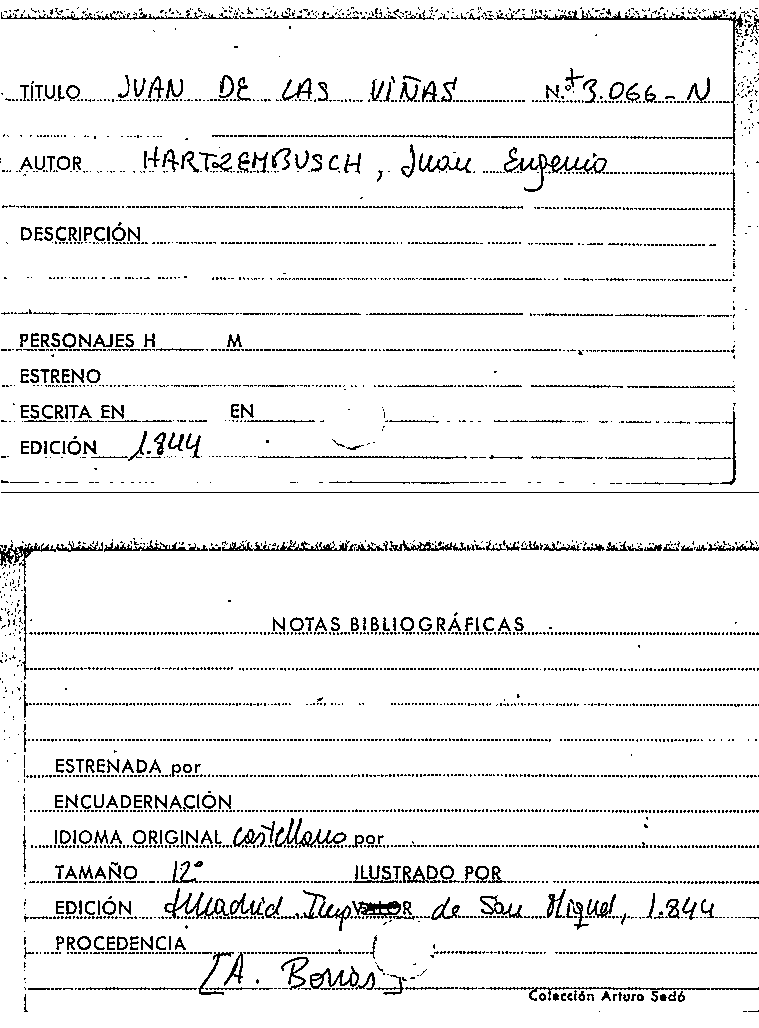 TÍTULO JUAN DE LAS VIÑAS N.º + 3.066-N
AUTOR HARTZEMBUSCH, Juan Eugenio
DESCRIPCIÓN
PERSONAJES H M
ESTRENO
ESCRITA EN EN
EDICIÓN 1.844
NOTAS BIBLIOGRÁFICAS
ESTRENADA por
ENCUADERNACIÓN
IDIOMA ORIGINAL Castellano por
TAMAÑO 12º ILUSTRADO POR
EDICIÓN Madrid. Imp VALOR de San Miguel, 1.844
PROCEDENCIA
[A. Borrás]
Colección Arturo Sedó